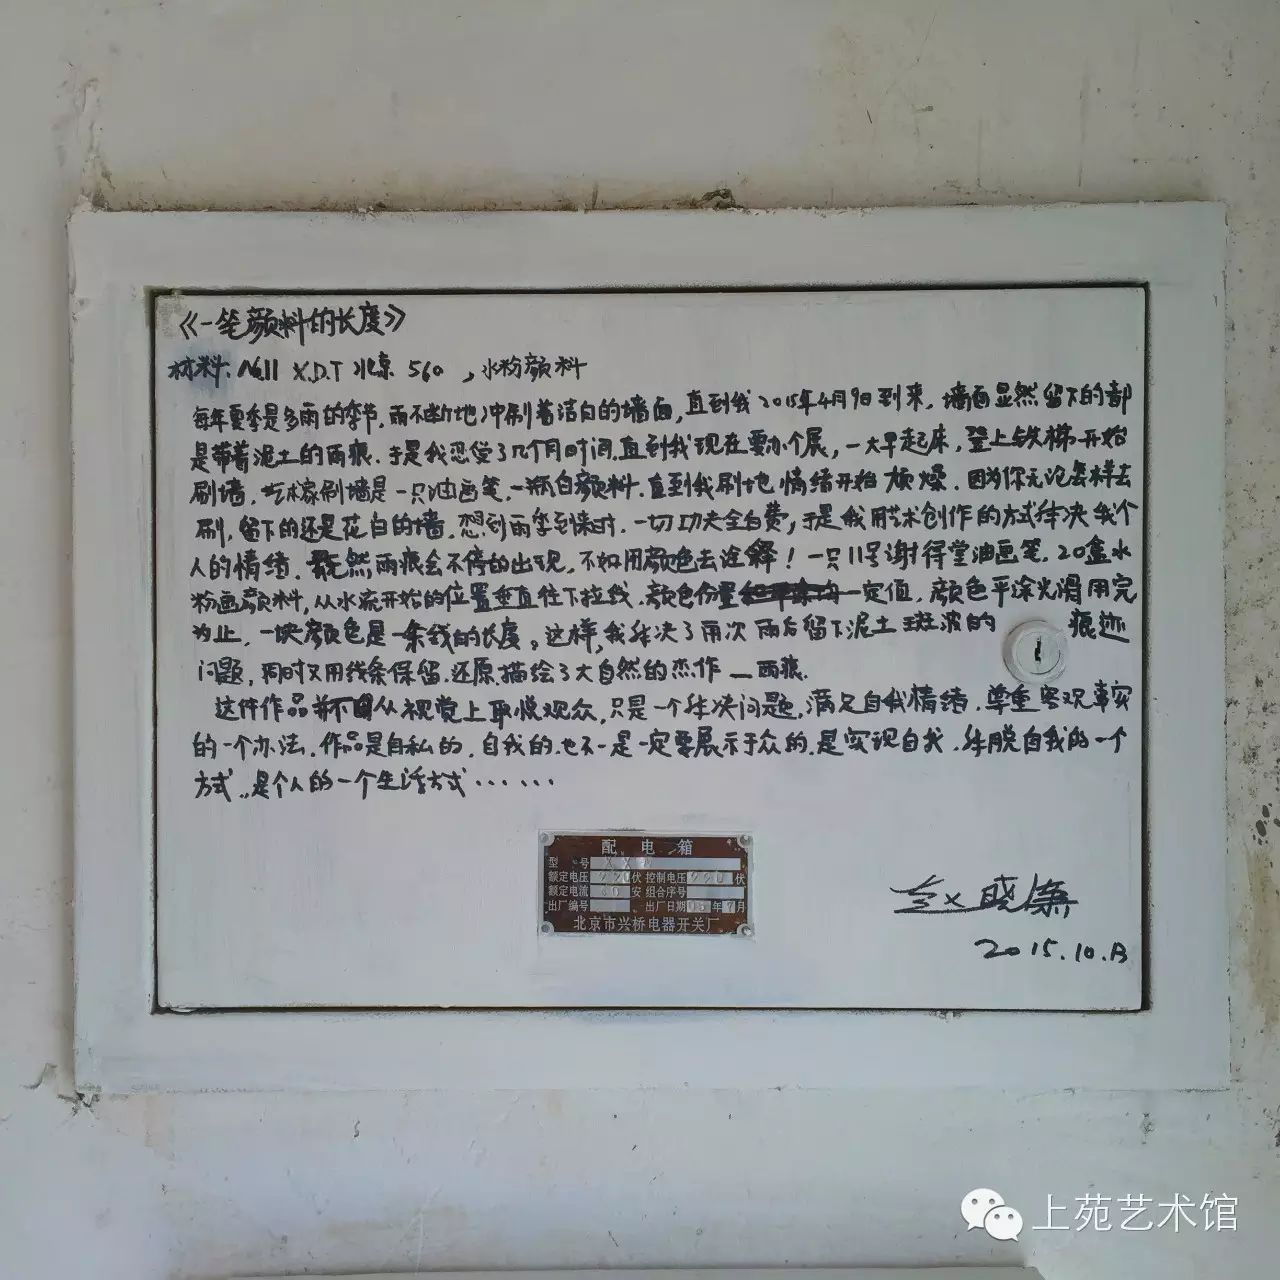 《一笔颜料的长度》
材料: No.11 X.D.T 北京 560 , 水粉颜料
每年夏季是多雨的季节, 雨不断地冲刷着洁白的墙面, 直到我2015年4月9日到来, 墙面显然留下的都
是带着泥土的雨痕. 于是我忍受了几个月时间, 直到我现在要办个展, 一大早起床, 登上铁梯开始
刷墙. 艺术家刷墙是一只油画笔, 一瓶白颜料. 直到我刷地情绪开始烦燥. 因为你无论怎样去
刷, 留下的还是花白的墙. 想到雨季到来时. 一切功夫全白费, 于是我用艺术创作的方式解决我个
人的情绪. 既然雨痕会不停的出现, 不如用颜色去诠释! 一只11号谢得堂油画笔. 20盒水
粉画颜料, 从水流开始的位置垂直往下拉线. 颜色份量一定值. 颜色平涂光滑用完
为止. 一块颜色是一条线的长度。这样, 我解决了雨次雨后留下泥土斑液的痕迹
问题, 同时又用线条保留. 还原. 描绘了大自然的杰作 — 雨痕.
这件作品并不从视觉上取悦观众, 只是一个解决问题, 满足自我情绪. 尊重客观事实
的一个办法. 作品是自私的. 自我的. 也不一是一定要展示于众的. 是实现自我. 解脱自我的一个
方式.. 是个人的一个生活方式······
赵晓廉
2015.10.13
配电箱
型号 X X
额定电压 220 伏 控制电压 220 伏
额定电流 安 组合序号
出厂编号 出厂日期 年 7 月
北京市兴桥电器开关厂
上苑艺术馆